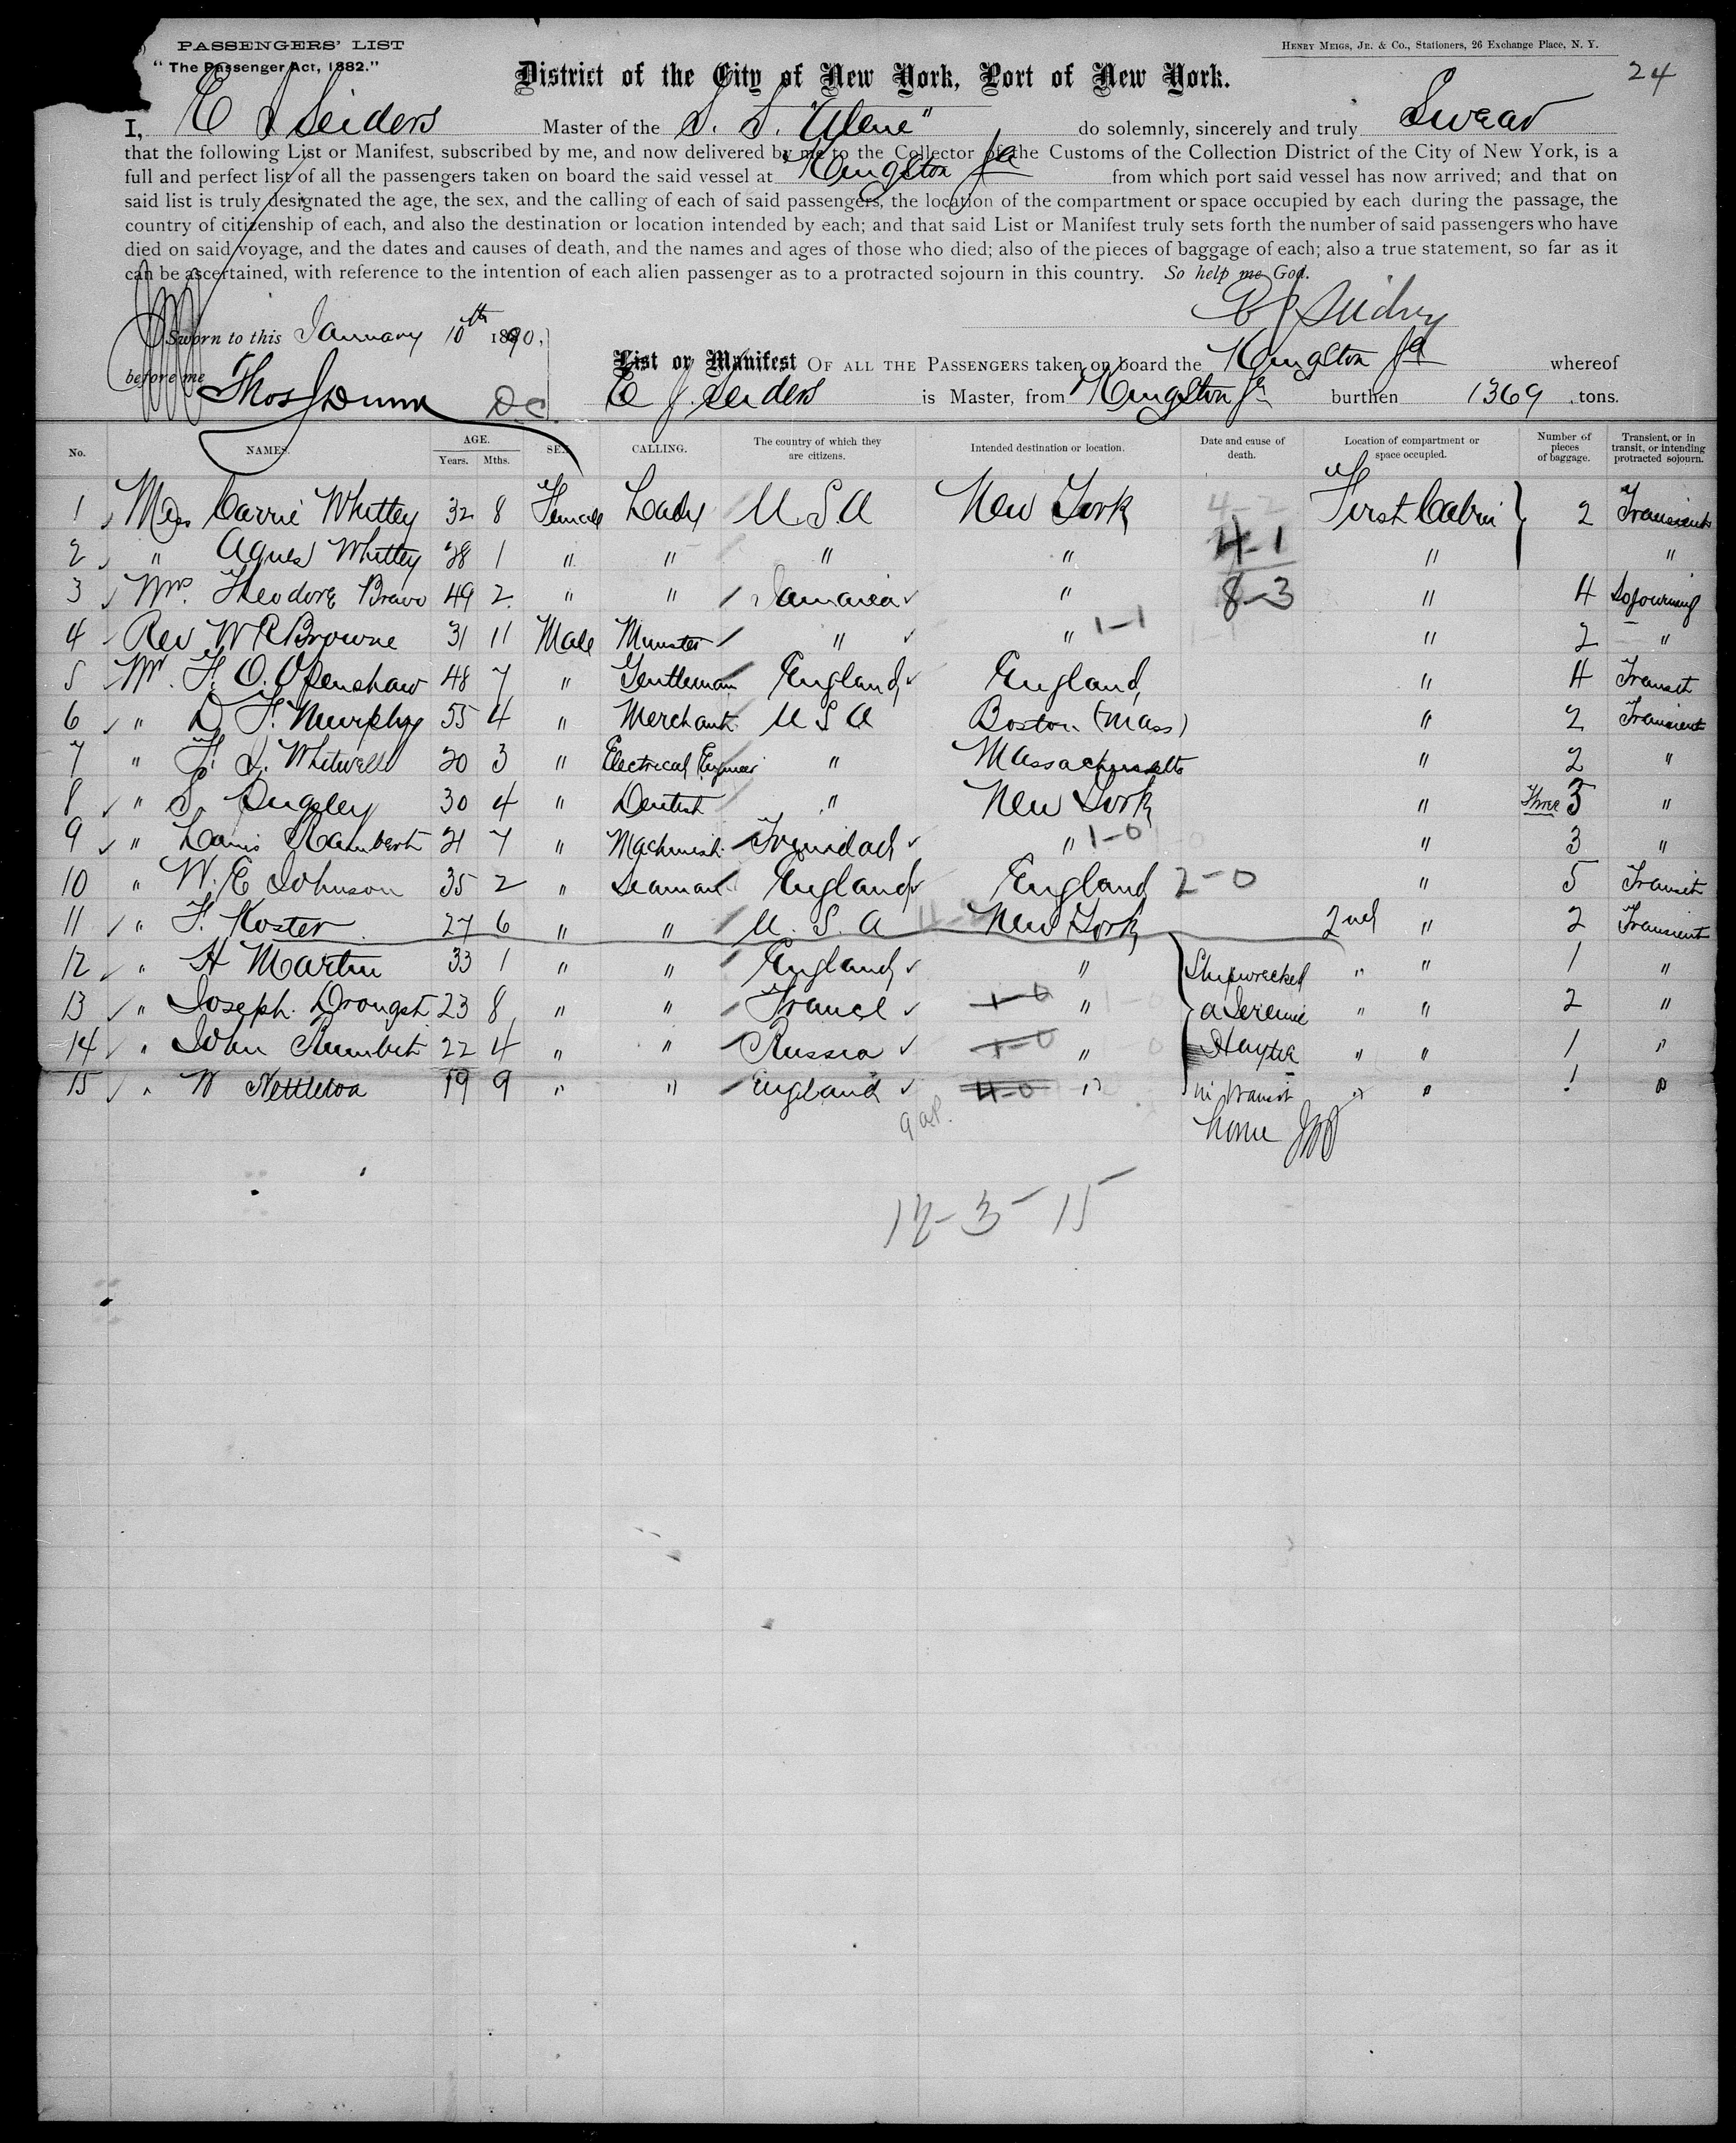 PASSENGERS' LIST
HENRY MEIGS, JR. & CO., Stationers, 26 Exchange Place, N. Y.
"The Passenger Act, 1882."
District of the City of New York, Port of New York.
24
I, E J Seiders Master of the S. S. "Alene" do solemnly, sincerely and truly Swear
that the following List or Manifest, subscribed by me, and now delivered by me to the Collector of the Customs of the Collection District of the City of New York, is a
full and perfect list of all the passengers taken on board the said vessel at Kingston Ja from which port said vessel has now arrived; and that on
said list is truly designated the age, the sex, and the calling of each of said passengers, the location of the compartment or space occupied by each during the passage, the
country of citizenship of each, and also the destination or location intended by each; and that said List or Manifest truly sets forth the number of said passengers who have
died on said voyage, and the dates and causes of death, and the names and ages of those who died; also of the pieces of baggage of each; also a true statement, so far as it
can be ascertained, with reference to the intention of each alien passenger as to a protracted sojourn in this country. So help me God.
E J Seiders
Sworn to this January 10th 1890,
before me Thos J Dunn DC
List or Manifest OF ALL THE PASSENGERS taken on board the Kingston Ja whereof
E J. Seiders is Master, from Kingston Ja burthen 1369 tons.
No. NAMES. AGE. Years. Mths. SEX. CALLING. The country of which they are citizens. Intended destination or location. Date and cause of death. Location of compartment or space occupied. Number of pieces of baggage. Transient, or in transit, or intending protracted sojourn.
1 Miss Carrie Whittey 32 8 Female Lady U.S.A New York 4-2 First Cabin 2 Transient
2 " Agnes Whittey 28 1 " " " " 4-1 " "
3 Mrs. Theodore Bravo 49 2 " " Jamaica " 8-3 " 4 Sojourning
4 Rev W R Browne 31 11 Male Minister " " 1-1 " 2 "
5 Mr. F. O. Openshaw 48 7 " Gentleman England England " 4 Transit
6 " D F. Murphy 55 4 " Merchant U S A Boston (Mass) " 2 Transient
7 " F. Whitwell 20 3 " Electrical Engineer " Massachusetts " 2 "
8 " S. Pugsley 30 4 " Dentist " New York " Three 3 "
9 " Louis Rambert 21 7 " Machinist Trinidad " 1-0 " 3 "
10 " W. E Johnson 35 2 " Seaman England England 2-0 " 5 Transit
11 " F. Koster 27 6 " " U. S. A New York 2nd " 2 Transient
12 " H Martin 33 1 " " England " Shipwrecked " " 1 "
13 " Joseph 23 8 " " France 1-0 " a Jeremie " " 2 "
14 " John 22 4 " " Russia 1-0 " Haytia " " 1 "
15 " W Nettleton 19 9 " " England 4-0 " in transit " " 1 "
home
12-3-15